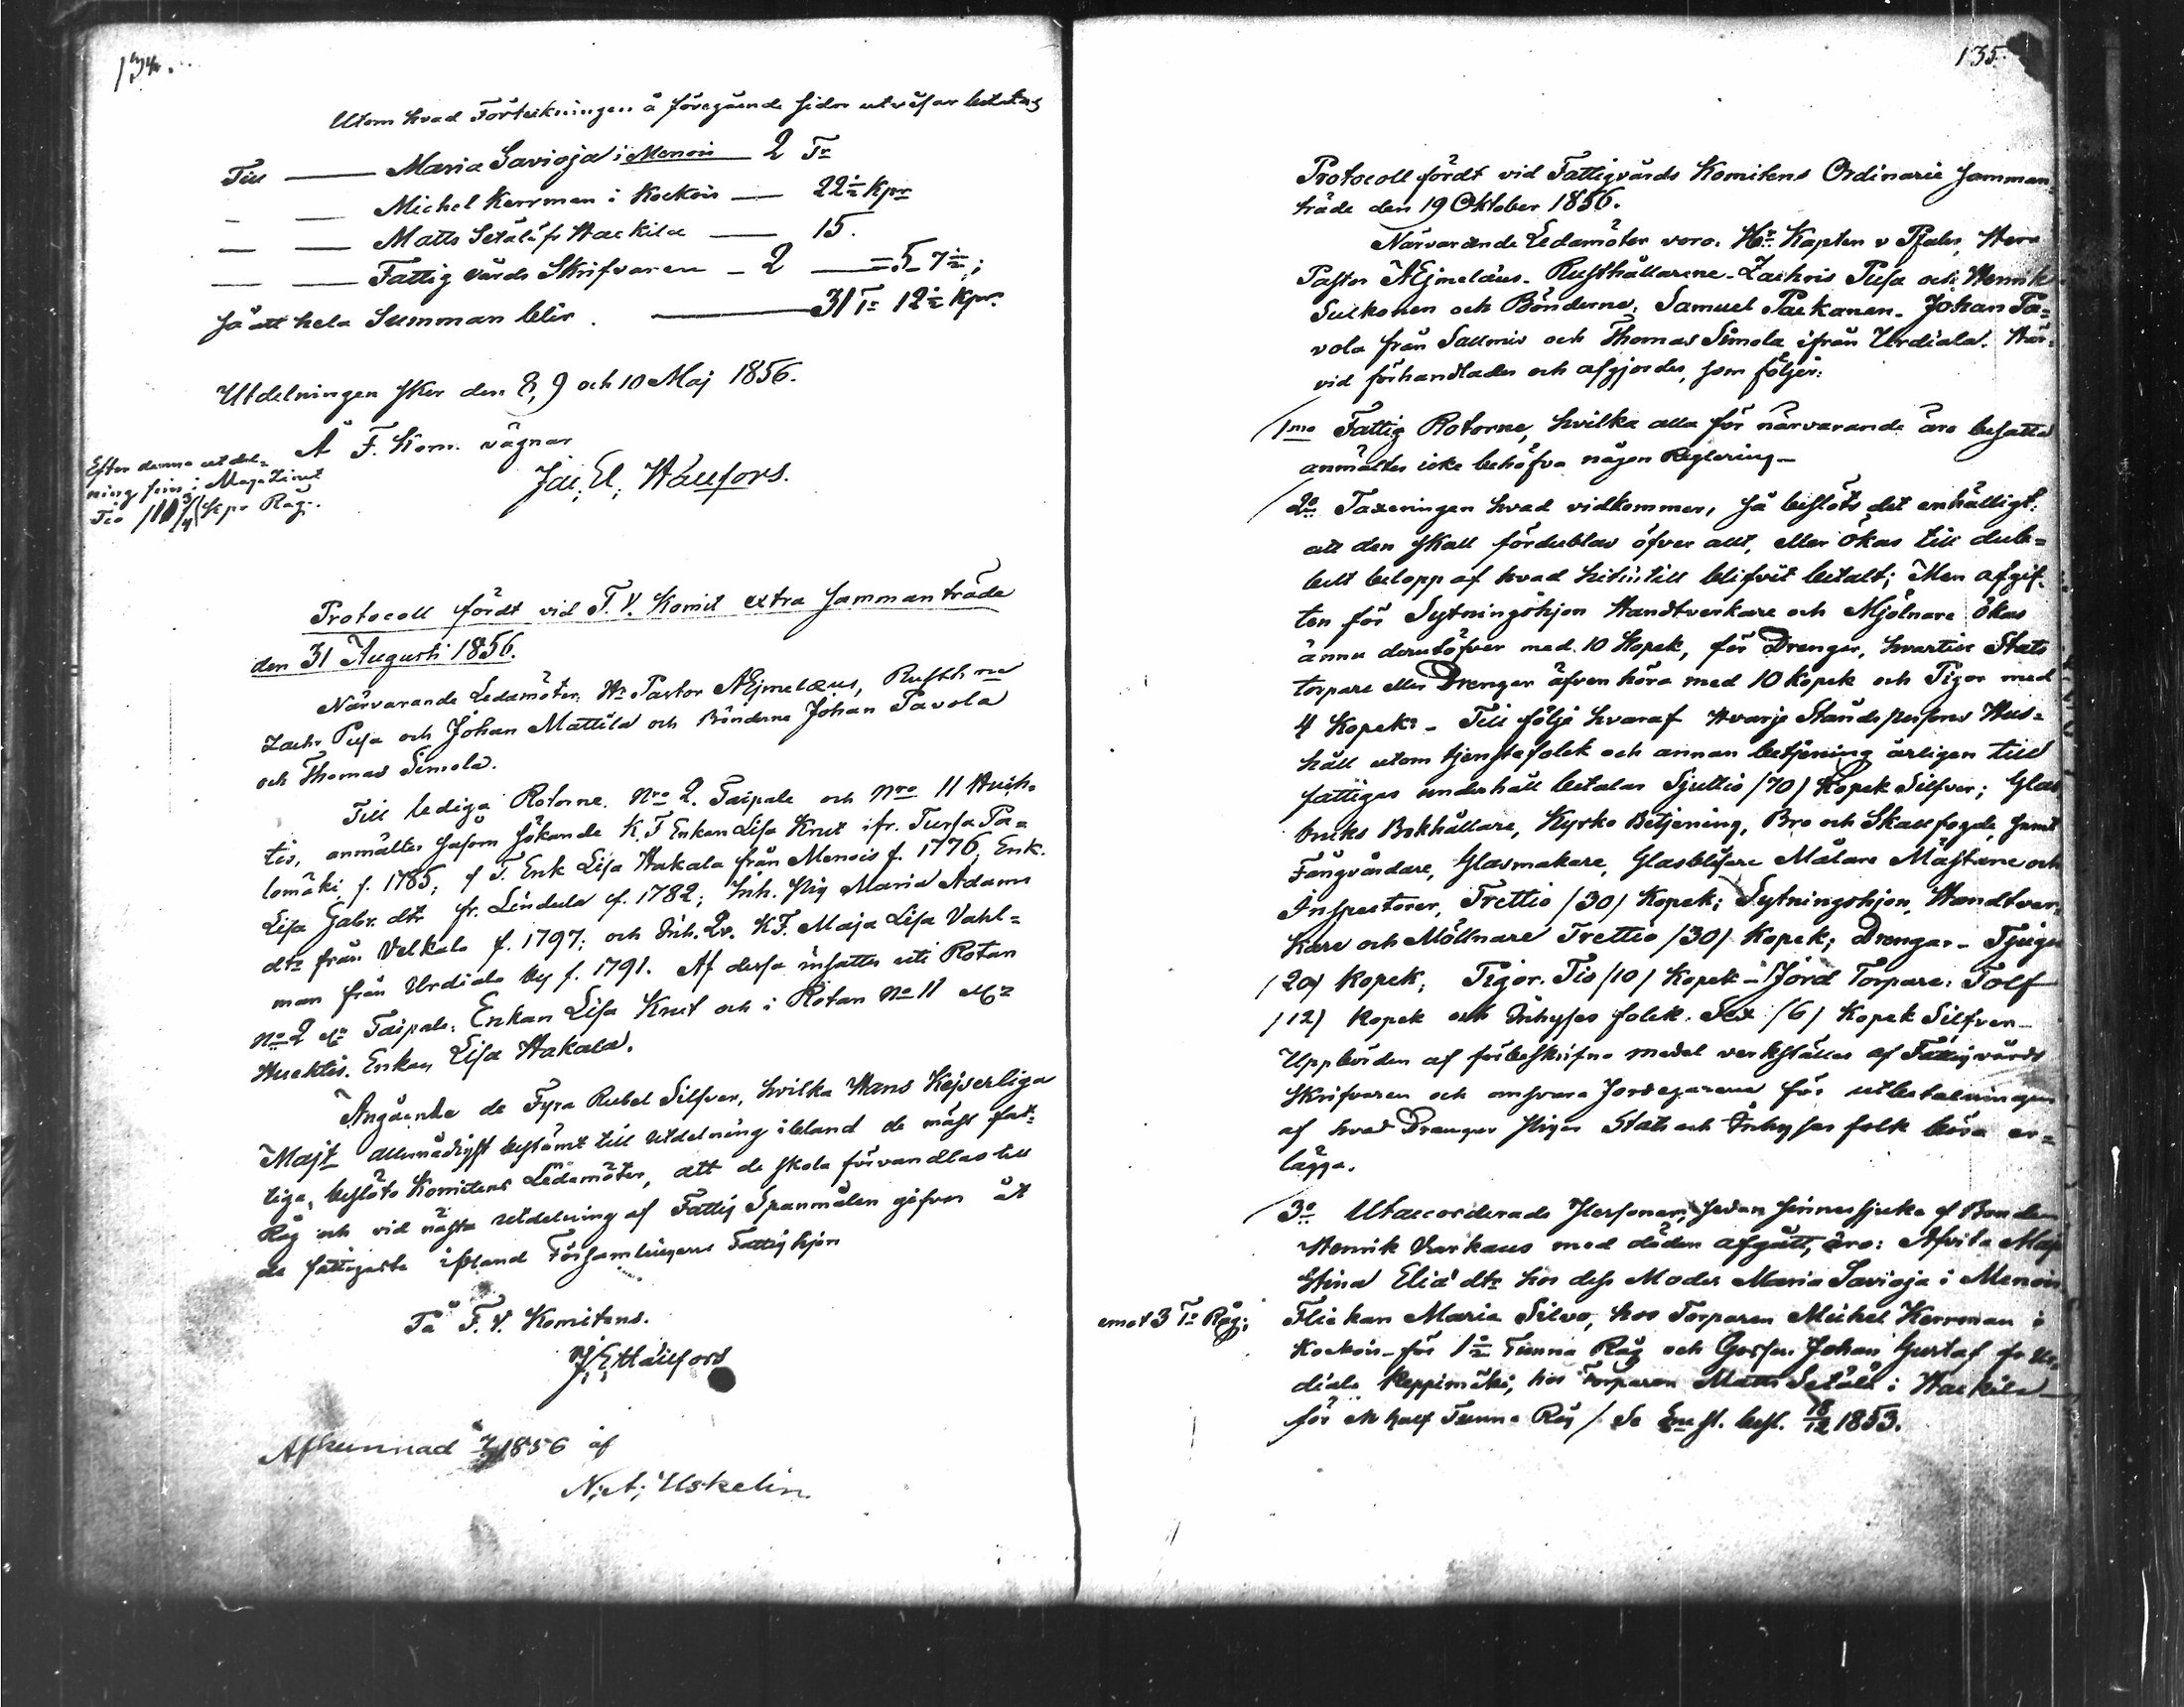 134.
Utom hvad Förteckningen å föregående sidor utvisar betalas
Till — Maria Savioja i Menois — 2 Tr
- — Michel Kerrman i Kockois — 22½ Kpr
— — Matts Setälä fr Hackila — 15.
— — Fattig vårds Skrifvaren — 2 — 5 7½;
så att hela Summan blir. — 31 Tr 12½ Kpr.
Utdelningen sker den 8, 9 och 10 Maj 1856.
Å F. Kom. vägnar
Efter denna utdel=
ning fins i Magazinet
Tio Kpr Råg.
Protocoll fördt vid F. V. Komit extra sammanträde
den 31 Augusti 1856.
Närvarande Ledamöter: Hr Pastor Ejmelæus, Rusth ne
Zachr Pusa och Johan Mattila och Bönderne Johan Tavola
och Thomas Simola.
Till lediga Rotorne Nro 2. Taipale och Nro 11 Huch=
tis, anmältes såsom sökande K. F Enkan Lisa Knut ifr. Tursa Pa=
lomäki f. 1785; f T. Enk Lisa Hakala från Menois f. 1776, Enk.
Lisa Gabr. dtr fr. Lindula f. 1782; Inh. Pig Maria Adams
dtr från Velkala f. 1797; och Inh. Qv. K F. Maja Lisa Vahl=
man från Urdiala by f. 1791. Af dessa insattes uti Rotan
No 2 Taipale: Enkan Lisa Knut och i Rotan No 11
Huchtis. Enkan Lisa Hakala.
Angående de Fyra Rubel Silfver, hvilka Hans Kejserliga
Majt allernådigst bestämt till utdelning ibland de mäst fat=
tiga, beslöto Komitens Ledamöter, att de skola förvandlas till
Råg och vid nästa utdelning af Fattig Spanmålen gifvas åt
de fattigaste ibland Församlingens Fattighjon
På F. V. Komitens.
Afkunnad 1856 af
N: A: Uskelin.
135.
Protocoll fördt vid Fattigvårds Komitens Ordinarie samman
träde den 19 Oktober 1856.
Närvarande Ledamöter voro: Hr Kapten v Pfaler, Herr
Pastor Ejmelæus. Rusthållarene Zachris Pusa och Henrik
Sulkonen och Bönderne: Samuel Packanen. Johan Ta=
vola från Salmis och Thomas Simola ifrån Urdiala. Här=
vid förhandlades och afgjordes, som följer:
1mo Fattig Rotorne, hvilka alla för närvarande äro besatta
anmältes icke behöfva någon Reglering—
2o Taxeringen hvad vidkommer, så beslöts det enhälligt:
att den skall fördublas öfver allt, eller ökas till dub=
belt belopp af hvad hitintill blifvit betalt; Men afgif=
ten för Sytningshjon Handtverkare och Mjölnare ökas
ännu derutöfver med 10 Kopek, för Drenger, hvartill Stats
torpare eller Drenger äfven höra med 10 kopek och Pigor med
4 Kopek. Till följe hvaraf Hvarje Ståndspersons Hus=
håll utom tjenstefolck och annan betjening årligen till
fattigas underhåll betalar Sjuttio /70/ Kopek Silfver; Glas
bruks Bokhållare, Kyrko Betjening, Bro och Skallfogde, samt
Fångvårdare, Glasmakare, Glasblåsare Målare Mästare och
Inspectorer, Trettio /30/ Kopek; Sytningshjon, Handtver=
kare och Möllnare Trettio /30/ Kopek; Drengar – Tjugu
/20/ Kopek; Pigor. Tio /10/ Kopek – Jord Torpare: Tolf
/12/ Kopek och Inhyses folck. Sex /6/ Kopek Silfver—
Uppbörden af förbeskrifne medel verkställes af Fattigvårds
Skrifvaren och ansvara Jordegarena för utbetalningen
af hvad Drenger Pigor Stats och Inhyses folk böra er=
lägga.
3o Utaccorderade Personer, sedan sinnessjuka af Bonden
Henrik Varkaus med döden afgått, äro: Afvita Maja
Stina Elia dtr hos dess Moder Maria Savioja i Menois
emot 3 Tr Råg;
Flickan Maria Silvo, hos Torparen Michel Kerrman i
Kockois – för 1½ Tunna Råg och Gossen Johan Gustaf fr Ur=
diala Reppimäki, hos Torparen Matts Setälä i Hackila
för en half Tunna Råg / Se besl. 18/12 1853.